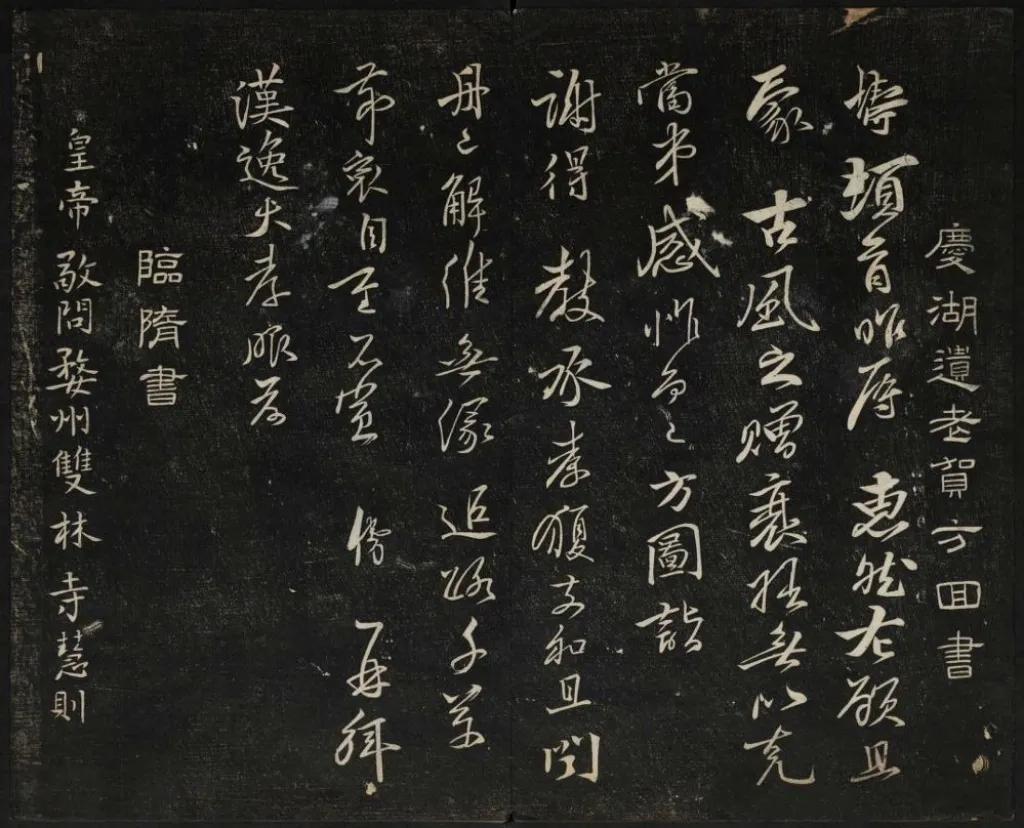 慶湖遺老賀方回書
鑄頓首昨辱 惠然左顧且
蒙 古風之贈衰拙無以克
當第感怍 方圖詣
謝得 教承孝履支和且聞
舟已解維無緣 追路千萬
節哀自至不宣 鑄 再拜
漢逸大孝服前
臨隋書
皇帝敬問婺州雙林寺慧則